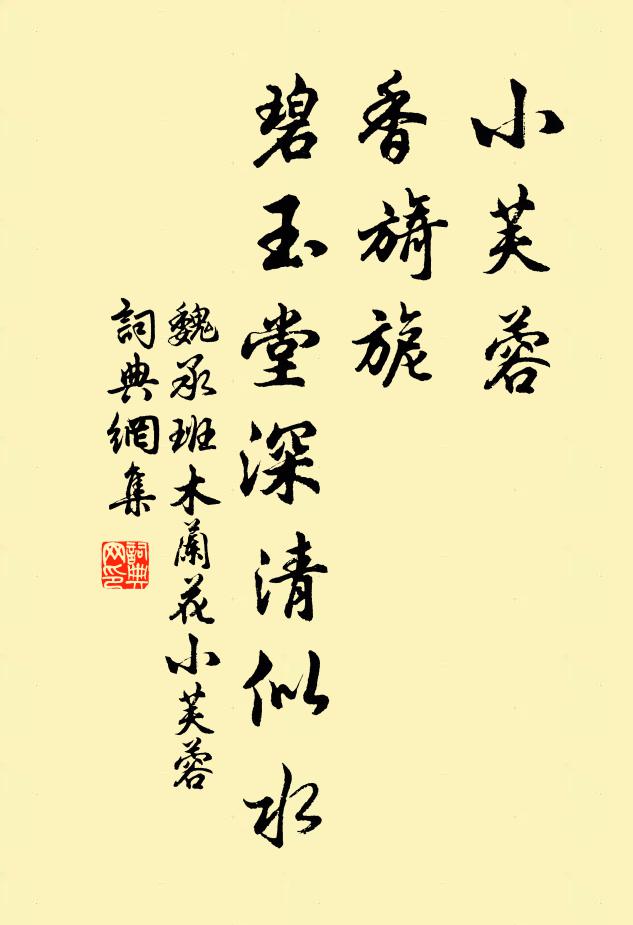 小芙蓉
香旖旎
碧玉堂深清似水
魏承班木蘭花小芙蓉
詞典網集
詞典
网印